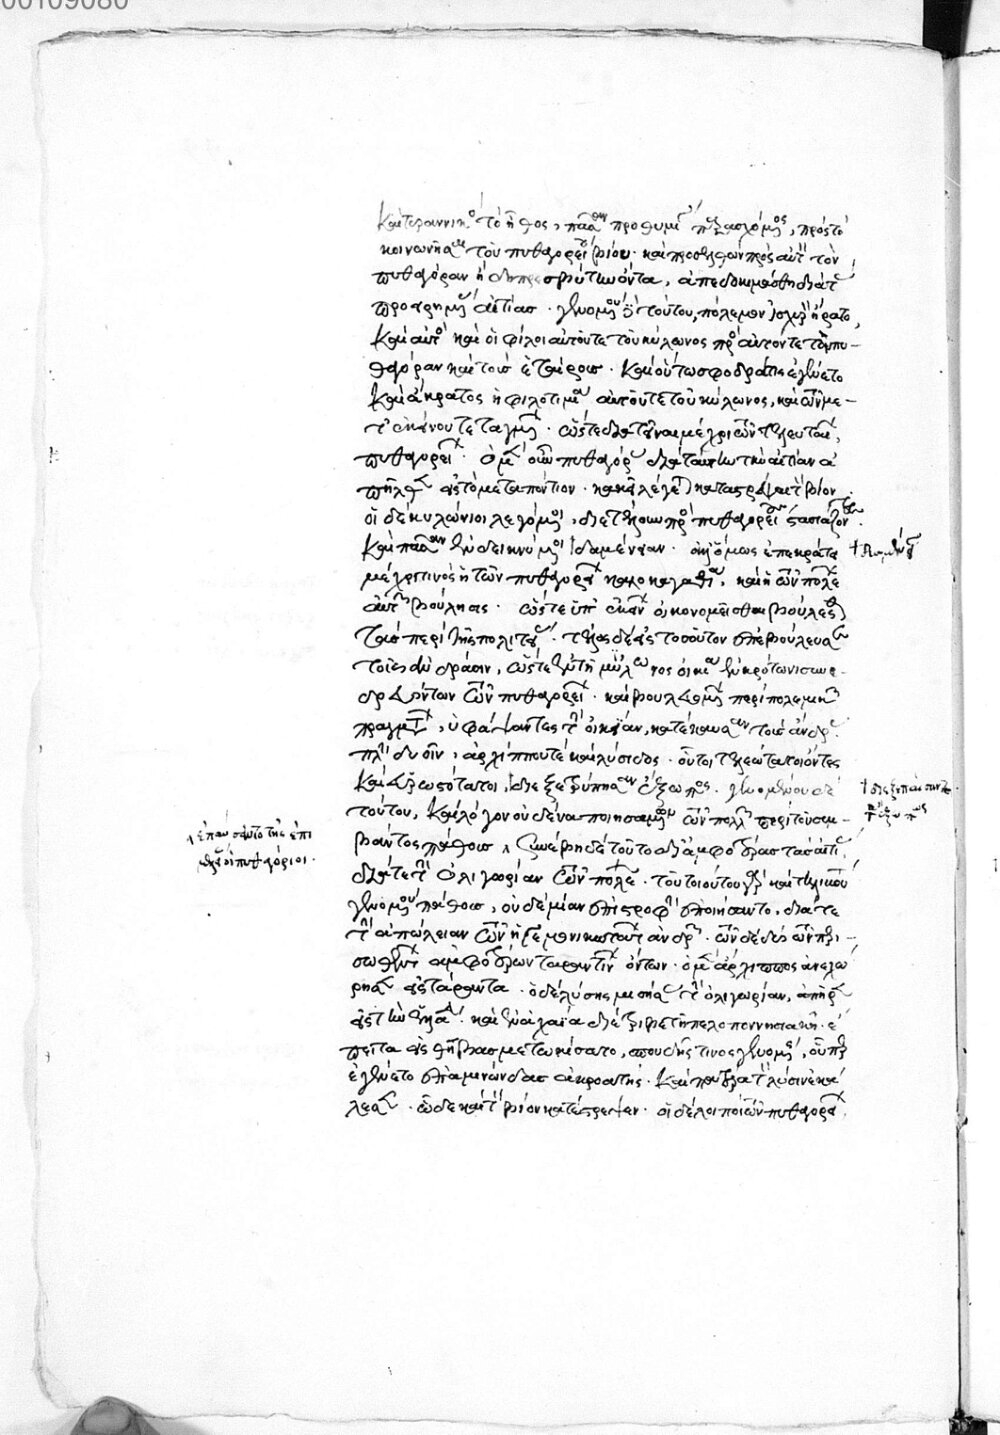 00109080
καὶ τυραννικὸς τὸ ἦθος, πᾶσαν προθυμίαν παρασχόμενος, πρὸς τὸ
κοινωνῆσαι τοῦ πυθαγορείου βίου. καὶ προσελθὼν πρὸς αὐτὸν τὸν
πυθαγόραν ἤδη πρεσβύτην ὄντα, ἀπεδοκιμάσθη διὰ τὰς
προειρημένας αἰτίας. γενομένου δὲ τούτου, πόλεμον ἰσχυρὸν ἤρατο,
καὶ αὐτὸς καὶ οἱ φίλοι αὐτοῦ τε τοῦ κύλωνος πρὸς αὐτόν τε τὸν πυ-
θαγόραν καὶ τοὺς ἑταίρους. καὶ οὕτω σφοδρά τις ἐγένετο
καὶ ἄκρατος ἡ φιλοτιμία αὐτοῦ τε τοῦ κύλωνος, καὶ τῶν με-
τ' ἐκείνου τεταγμένων. ὥστε διατεῖναι μέχρι τῶν τελευταίων
πυθαγορείων. ὁ μὲν οὖν πυθαγόρας διὰ ταύτην τὴν αἰτίαν ἀ-
πῆλθεν εἰς τὸ μεταπόντιον. κἀκεῖ λέγεται καταστρέψαι τὸν βίον.
οἱ δὲ κυλώνειοι λεγόμενοι, διετέλουν πρὸς πυθαγορείους στασιάζοντες.
καὶ πᾶσαν ἐνδεικνύμενοι δυσμένειαν. ἀλλ' ὅμως ἐπεκράτει
μέχρι τινὸς ἡ τῶν πυθαγορείων καλοκαγαθία, καὶ ἡ τῶν πόλεων
αὐτῶν βούλησις. ὥστε ὑπ' ἐκείνων οἰκονομεῖσθαι βούλεσθαι
τὰ περὶ τὰς πολιτείας. τέλος δὲ εἰς τοσοῦτον ἐπεβούλευσαν
τοῖς ἀνδράσιν, ὥστε ἐν τῇ μύλωνος οἰκίᾳ ἐν κρότωνι συνε-
δρευόντων τῶν πυθαγορείων. καὶ βουλευομένων περὶ πολεμικῶν
πραγμάτων, ὑφάψαντες τὴν οἰκίαν, κατέκαυσαν τοὺς ἄνδρας
πλὴν δυοῖν, ἀρχίππου τε καὶ λύσιδος. οὗτοι νεώτατοι ὄντες
καὶ εὐρωστότατοι, διεξεπαίσαντο ἔξω πως. γενομένου δὲ
τούτου, καὶ λόγον οὐδένα ποιησαμένων τῶν πόλεων περὶ τοῦ συμ-
βάντος πάθους, συνέβη δὲ τοῦτο δι' ἀμφοτέρας τὰς αἰτίας
διά τε τὴν ὀλιγωρίαν τῶν πόλεων. τοῦ τοιούτου γὰρ καὶ τηλικούτου
γενομένου πάθους, οὐδεμίαν ἐπιστροφὴν ἐποιήσαντο. διά τε
τὴν ἀπώλειαν τῶν ἡγεμονικωτάτων ἀνδρῶν. τῶν δὲ δύο τῶν περι-
σωθέντων ἀμφοτέρων ταραντίνων ὄντων. ὁ μὲν ἄρχιππος ἀνεχώ-
ρησεν εἰς τάραντα. ὁ δὲ λύσις μισήσας τὴν ὀλιγωρίαν, ἀπῆρεν
εἰς τὴν ἑλλάδα. καὶ ἐν ἀχαΐα διέτριβε τῇ πελοποννησιακῇ. ἔ-
πειτα εἰς θήβας μετῳκίσατο, σπουδῆς τινος γενομένης, οὗπερ
ἐγένετο ἐπαμινώνδας ἀκροατής. καὶ πατέρα τὸν λύσιν ἐκά-
λεσεν. ὧδε καὶ τὸν βίον κατέστρεψεν. οἱ δὲ λοιποὶ τῶν πυθαγορείων
ἐπαύσαντο τῆς ἐπι-
μελείας οἱ πυθαγόρειοι.